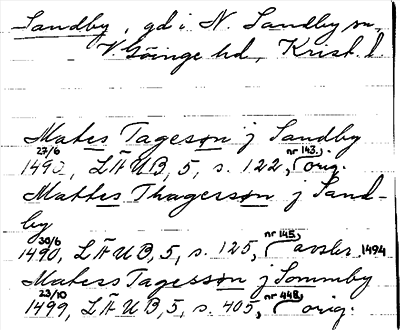 Sandby, gd i N. Sandby sn,
V. Göinge hd, Krist. l.
Mates Tageson j Sandby
27/6 nr 143,
1490, LÄUB, 5, s. 122, orig.
Mattes Thagersson j Sand-
by
30/6 nr 145,
1490, LÄUB, 5, s. 125, avskr. 1494
Matess Tagesson j Sommby
23/10 nr 448,
1499, LÄUB, 5, s. 405, orig.